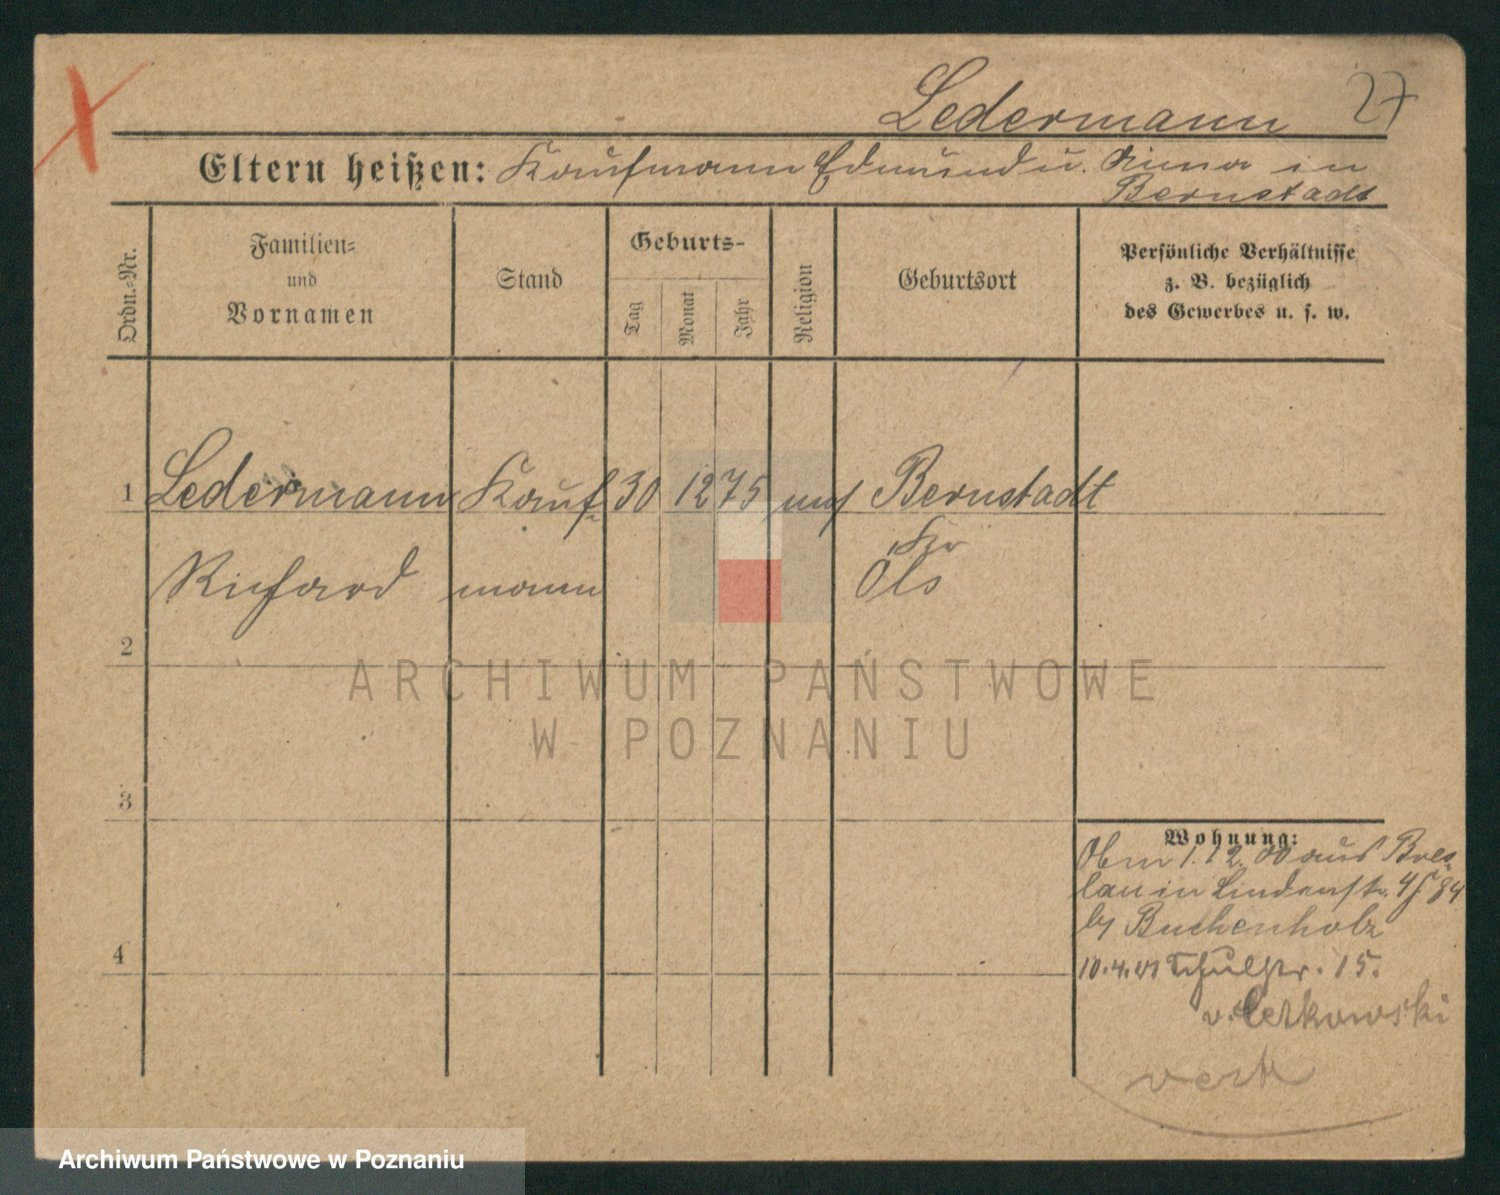 Ledermann 27
Eltern heißen: Kaufmann Edmund u. in
Bernstadt
Ordn.-Nr.
Familien-
und
Vornamen
Stand
Geburts-
Tag
Monat
Jahr
Religion
Geburtsort
Persönliche Verhältnisse
z. B. bezüglich
des Gewerbes u. s. w.
1 Ledermann Kauf- 30 12 75 Bernstadt
Kr
Richard mann Öls
2
ARCHIWUM PAŃSTWOWE
W POZNANIU
3
Wohnung:
1.12.00 aus Bres-
lau in Lindenstr. 4
by Buchenholz
4
10.4.01 Schulstr. 15.
v. Lerkowski
Archiwum Państwowe w Poznaniu